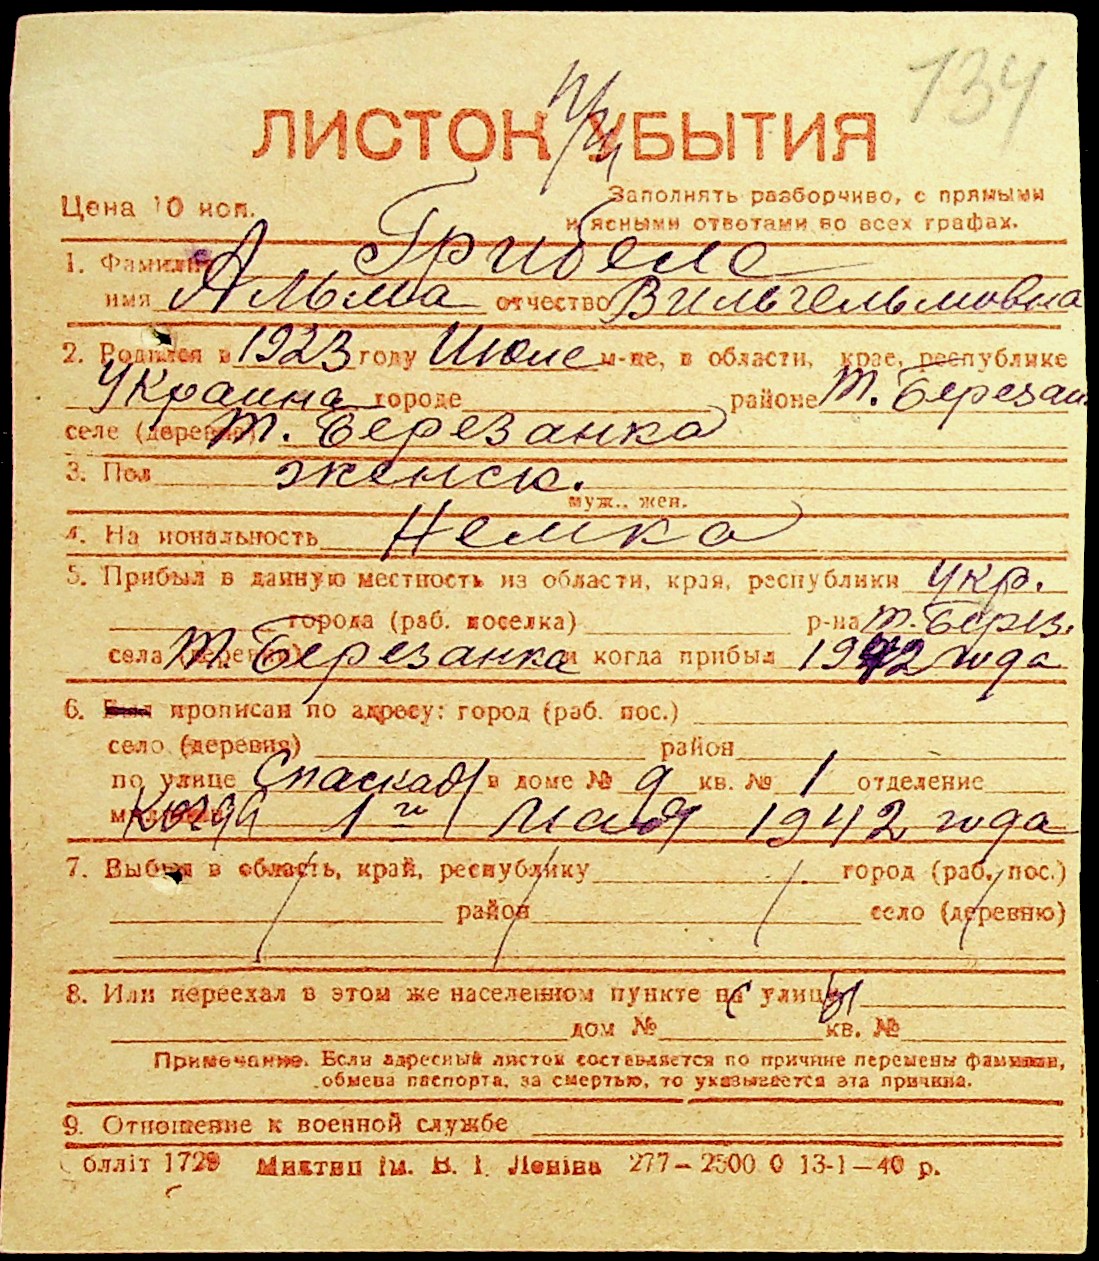 134
ЛИСТОК УБЫТИЯ
Цена 10 коп.
Заполнять разборчиво, с прямыми
и ясными ответами во всех графах.
1. Фамилия Грибеле
имя Альма отчество Вильгельмовна
2. Родился в 1923 году Июле м-це, в области, крае, республике
Украина городе районе Т. Березан.
селе (деревне) Т. Березанка
3. Пол женск.
муж., жен.
4. На иональность Немка
5. Прибыл в данную местность из области, края, республики Укр.
города (раб. поселка) р-на Т. Берез.
села (деревни) Т. Березанка и когда прибыл 1942 года
6. Был прописан по адресу: город (раб. пос.)
село (деревня) район
по улице Спаская в доме № 9 кв. № 1 отделение
Когда 1го Мая 1942 года
7. Выбыл в область, край, республику город (раб. пос.)
район село (деревню)
8. Или переехал в этом же населенном пункте на улицы
дом № кв. №
Примечание. Если адресный листок составляется по причине перемены фамилии,
обмена паспорта, за смертью, то указывается эта причина.
9. Отношение к военной службе
блліт 1729 Миктип ім. В. І. Леніна 277–2500 0 13-1–40 р.